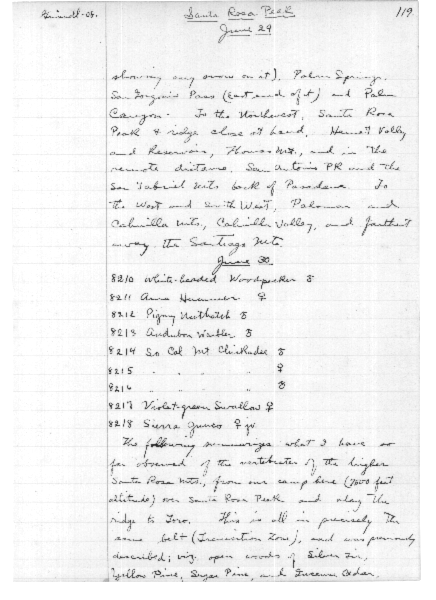 Grinnell-08.
Santa Rosa Peak 119
June 29
showing any snow on it). Palm Springs,
San Gorgonio Pass (east end of it) and Palm
Canyon. To the Northwest, Santa Rosa
Peak & ridge close at hand, Hemet Valley
and Reservoir, Thomas Mt., and in the
remote distance, San Antonio Pk and the
San Gabriel Mts back of Pasadena. To
the West and South West, Palomar and
Cahuilla Mts., Cahuilla Valley, and farthest
away the Santiago Mts.
June 30
8210 White-headed Woodpecker ♂
8211 Anna Hummer ♀
8212 Pigmy Nuthatch ♂
8213 Audubon Warbler ♂
8214 So Cal Mt Chickadee ♂
8215 " " " ♀
8216 " " " ♂
8217 Violet-green Swallow ♀
8218 Sierra Junco ♀ jv.
The following summarizes what I have so
far observed of the vertebrates of the higher
Santa Rosa Mts., from our camp here (7500 feet
altitude) over Santa Rosa Peak and along the
ridge to Toro. This is all in precisely the
same belt (Transition Zone), and was previously
described; viz. open woods of Silver Fir,
Yellow Pine, Sugar Pine, and Incense Cedar.